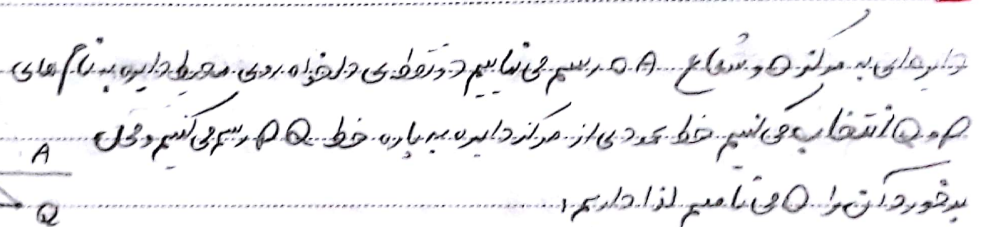 دایره‌ای به مرکز O و شعاع OA رسم می‌نماییم دو نقطه‌ی دلخواه روی محیط دایره به نام‌های
P و Q انتخاب می‌کنیم خط عمودی از مرکز دایره به پاره خط PQ رسم می‌کنیم و محل
A
برخورد آن را O می‌نامیم لذا داریم:
Q